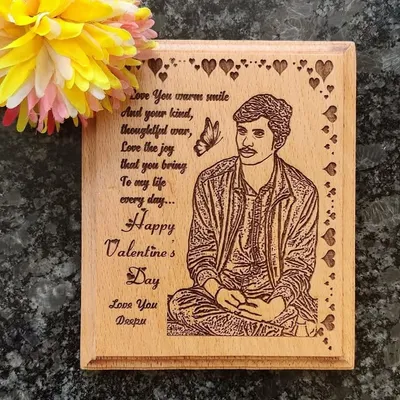 Love You warm smile
And your kind,
thoughtful war,
Love the joy
that you bring
To my life
every day...
Happy
Valentine's
Day
Love You
Deepu